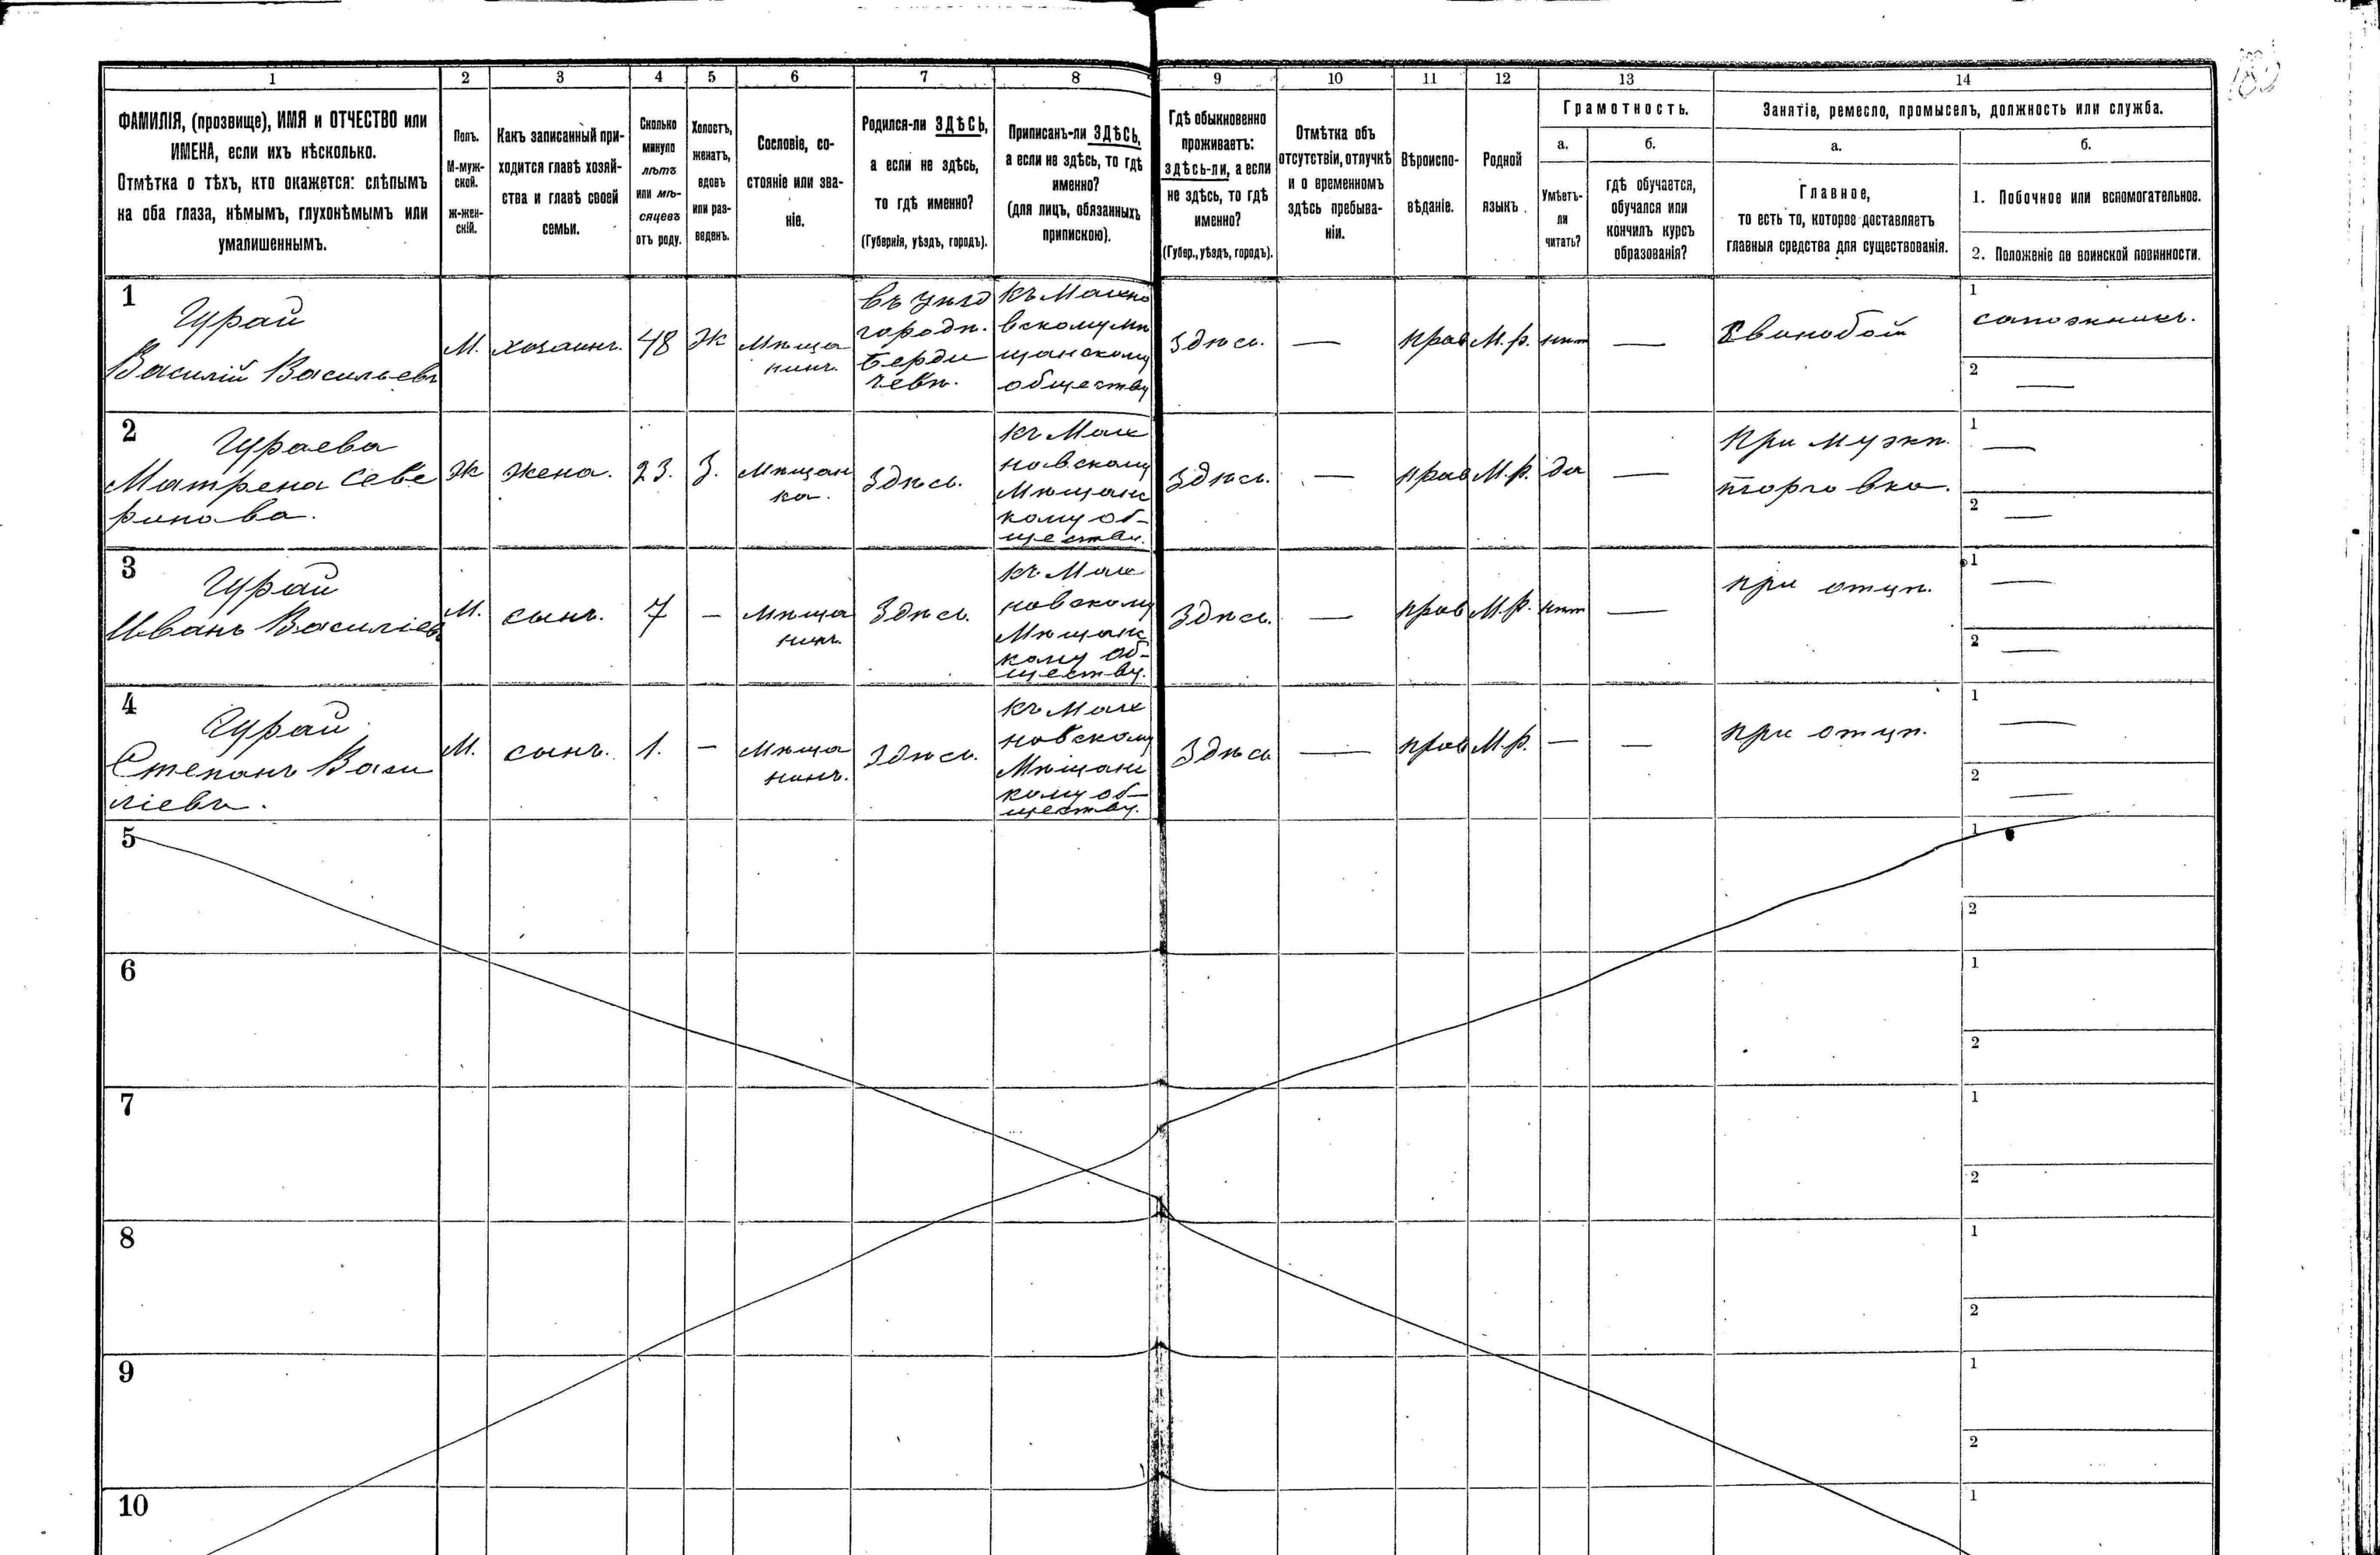 1 2 3 4 5 6 7 8 9 10 11 12 13 14
ФАМИЛІЯ, (прозвище), ИМЯ и ОТЧЕСТВО или
ИМЕНА, если ихъ нѣсколько.
Отмѣтка о тѣхъ, кто окажется: слѣпымъ
на оба глаза, нѣмымъ, глухонѣмымъ или
умалишеннымъ.
Полъ.
М-муж-
ской.
Ж-жен-
скій.
Какъ записанный при-
ходится главѣ хозяй-
ства и главѣ своей
семьи.
Сколько
минуло
лѣтъ
или мѣ-
сяцевъ
отъ роду.
Холостъ,
женатъ,
вдовъ
или раз-
веденъ.
Сословіе, со-
стояніе или зва-
ніе.
Родился-ли ЗДѢСЬ,
а если не здѣсь,
то гдѣ именно?
(Губернія, уѣздъ, городъ).
Приписанъ-ли ЗДѢСЬ,
а если не здѣсь, то гдѣ
именно?
(для лицъ, обязанныхъ
припискою).
Гдѣ обыкновенно
проживаетъ:
здѣсь-ли, а если
не здѣсь, то гдѣ
именно?
(Губер., уѣздъ, городъ).
Отмѣтка объ
отсутствіи, отлучкѣ
и о временномъ
здѣсь пребыва-
ніи.
Вѣроиспо-
вѣданіе.
Родной
языкъ.
Грамотность.
а.
Умѣетъ-
ли
читать?
б.
гдѣ обучается,
обучался или
кончилъ курсъ
образованія?
Занятіе, ремесло, промыселъ, должность или служба.
а.
Главное,
то есть то, которое доставляетъ
главныя средства для существованія.
б.
1. Побочное или вспомогательное.
2. Положеніе по воинской повинности.
1
Гурай
Василій Васильевъ
М.
хозаинъ.
48
Ж
Мѣща
нинъ.
городѣ.
Берди
чевѣ.
къ Махно
вскому мѣ
щанскому
обществу
Здѣсь.
—
прав
М.р.
нѣт
—
Свинобой
1
сапожникъ.
2
—
2
Гураева
Матрена Севе
ринова.
Ж
жена.
23.
З.
Мѣщан
ка.
Здѣсь.
къ Мах
новскому
Мѣщанс
кому об-
ществу.
Здѣсь.
—
прав
М.р.
да
—
При мужѣ
торговка.
1
—
2
—
3
Гурай
Иванъ Василіевъ
М.
сынъ.
7
—
Мѣща
нинъ.
Здѣсь.
къ Мах
новскому
Мѣщанс
кому об-
ществу.
Здѣсь.
—
прав
М.р.
нѣт
—
при отцѣ.
1
—
2
—
4
Гурай
Степанъ Васи
ліевъ.
М.
сынъ.
1.
—
Мѣща
нинъ.
Здѣсь.
къ Мах
новскому
Мѣщанс
кому об-
ществу.
Здѣсь
—
прав
М.р.
—
—
при отцѣ.
1
—
2
—
5
1
2
6
1
2
7
1
2
8
1
2
9
1
2
10
1